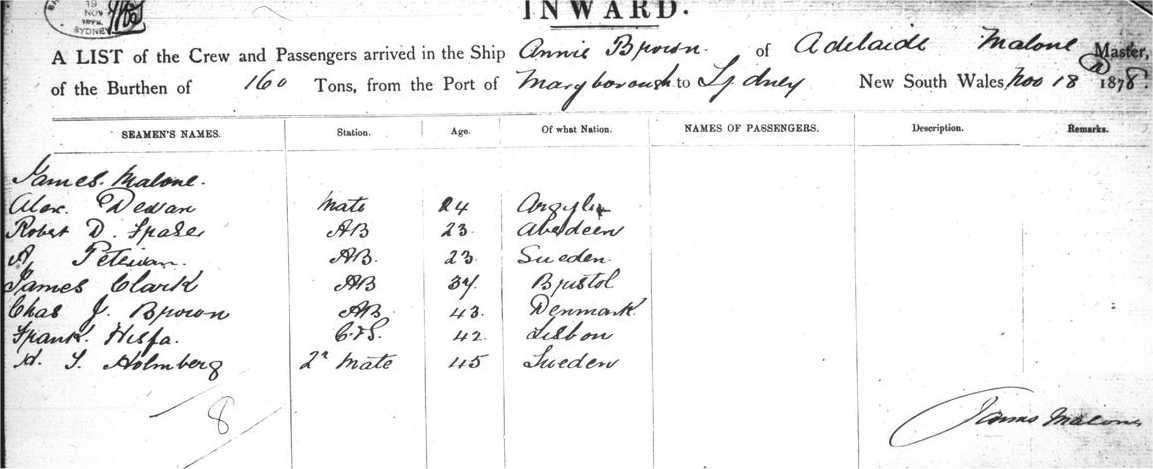 19
NOV
1878
SYDNEY
INWARD.
A LIST of the Crew and Passengers arrived in the Ship Annie Brown. of Adelaide Malone Master,
of the Burthen of 160 Tons, from the Port of Maryborough to Sydney New South Wales Nov 18 1878.
SEAMEN'S NAMES. Station. Age. Of what Nation. NAMES OF PASSENGERS. Description. Remarks.
James Malone.
Alex. Dewar Mate 24 Argyle
Robert D. Fraser AB 23. Aberdeen
A. AB. 23 Sweden.
James Clark AB 34 Bristol
Chas J. Brown AB 43. Denmark.
Frank. C&S. 42 Lisbon
H. S. Holmberg 2n Mate 45 Sweden
8
James Malone